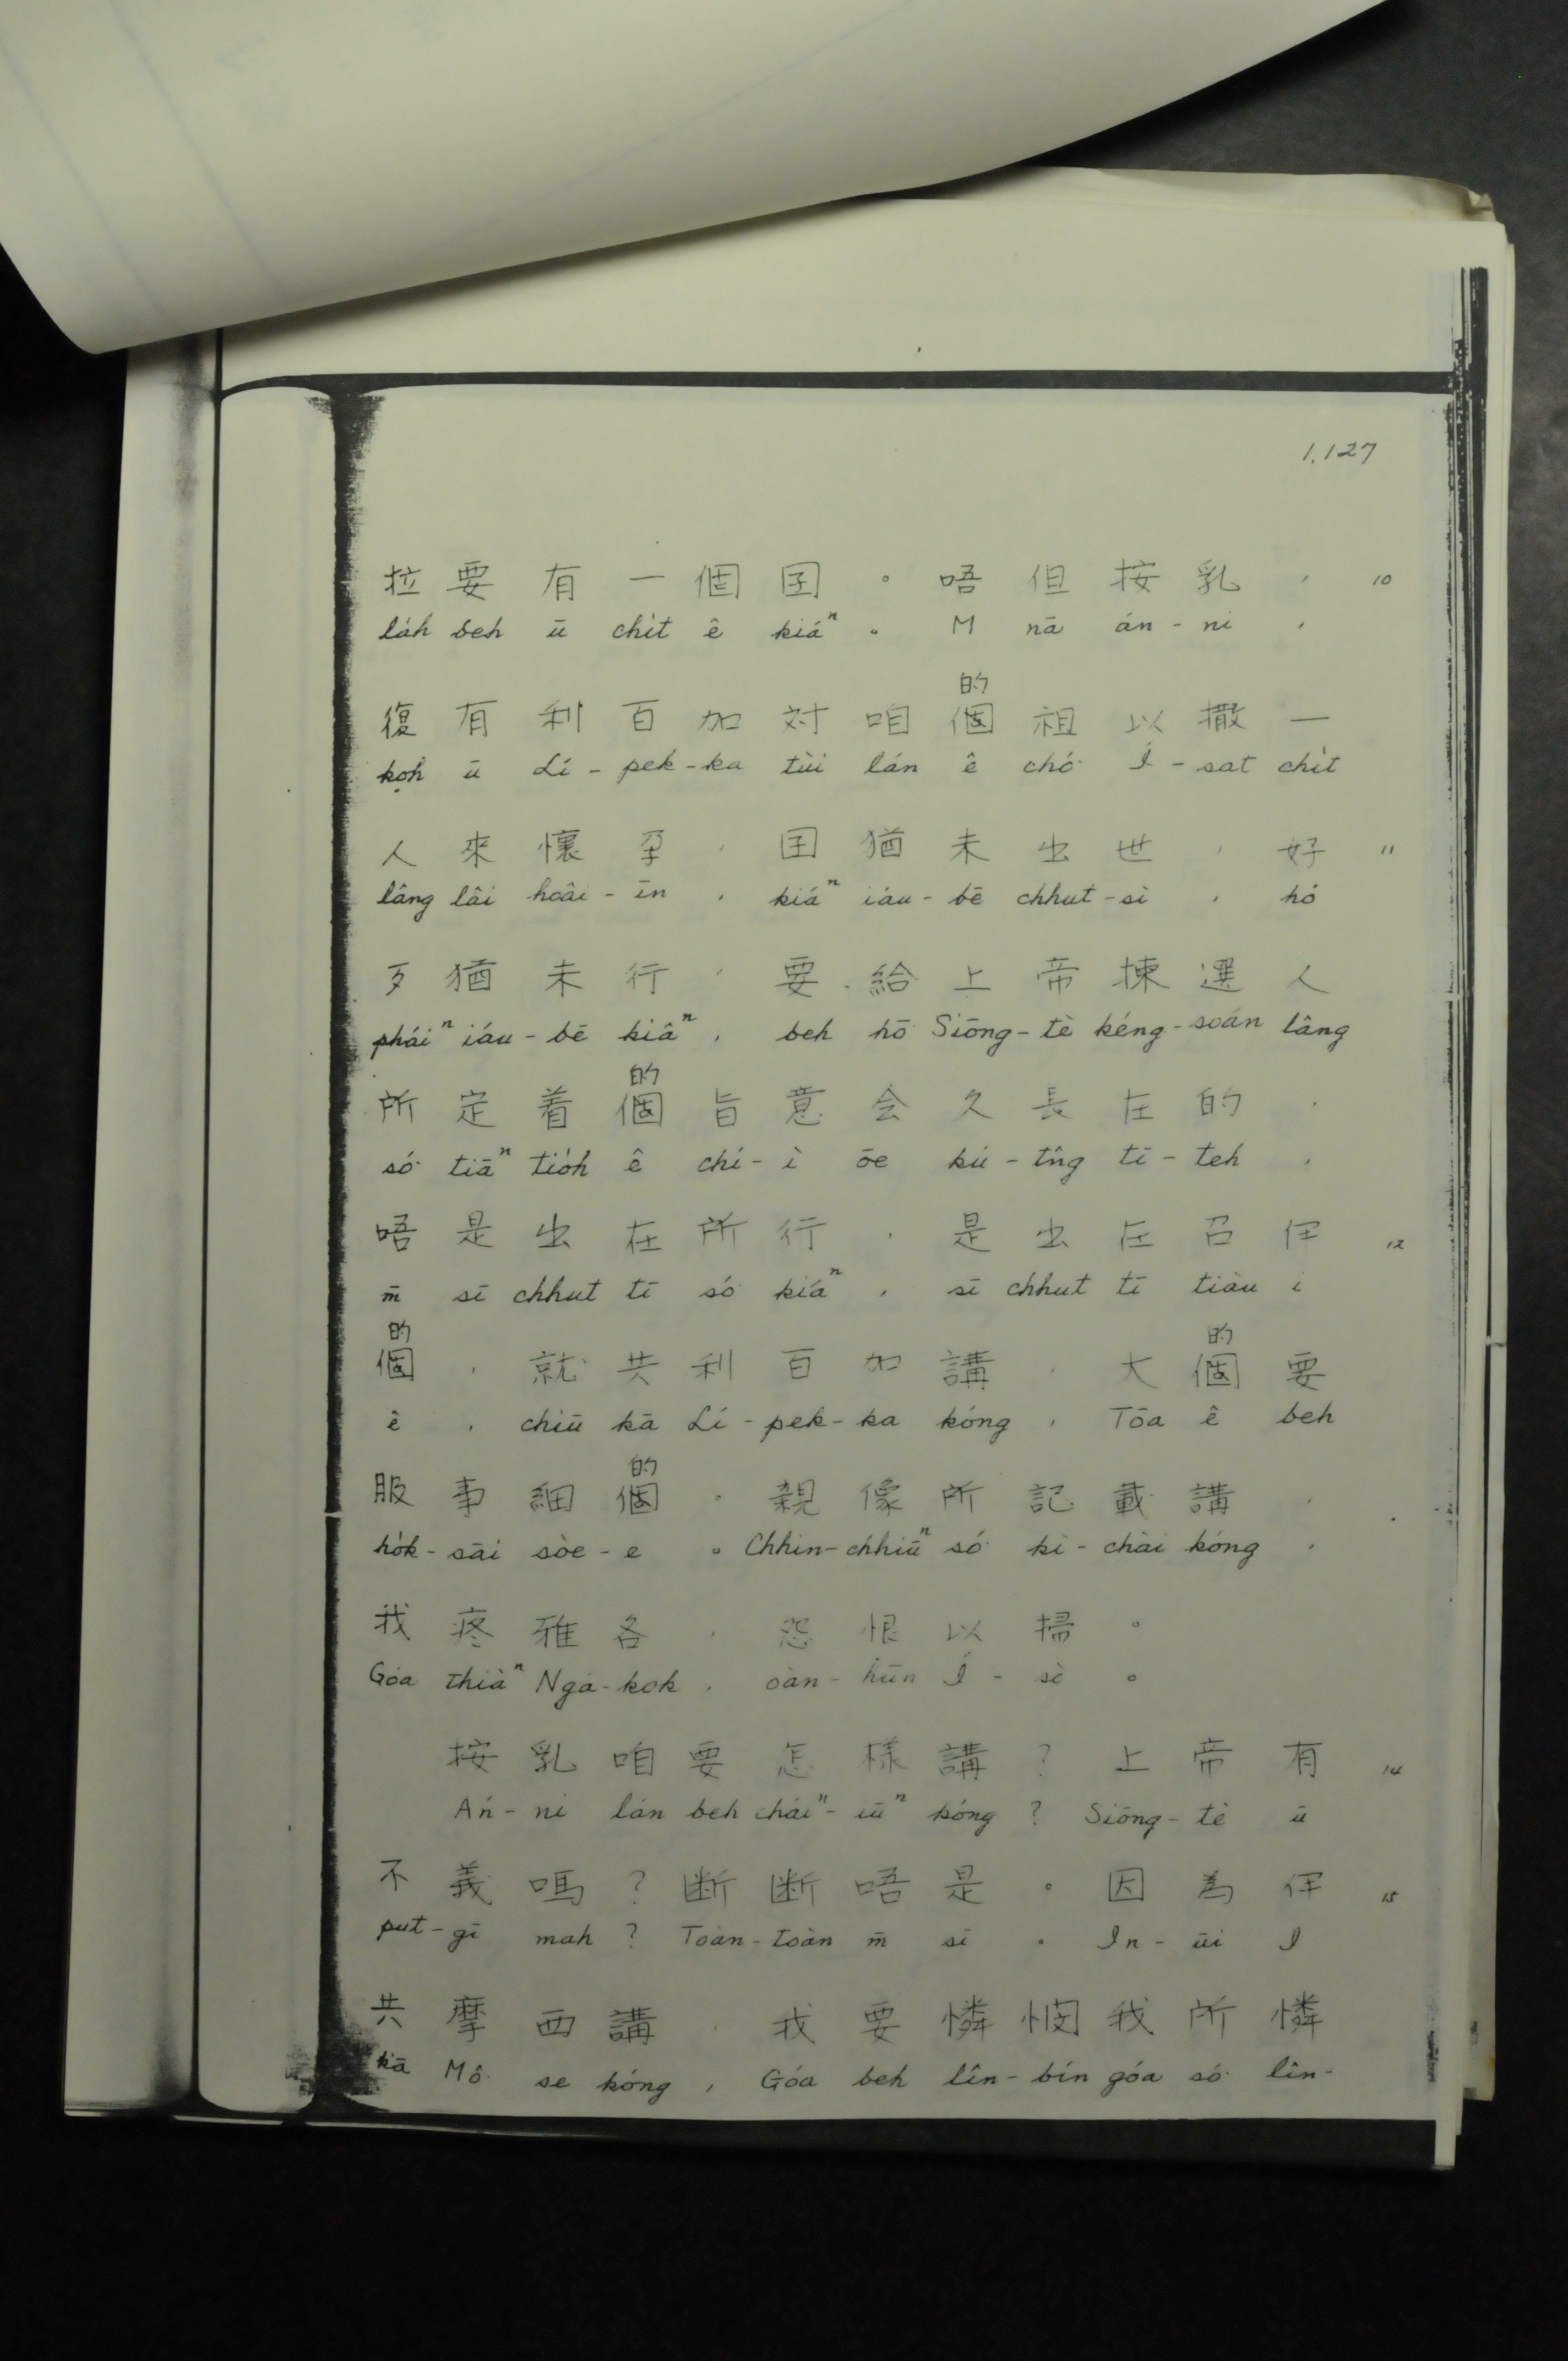 1.127
拉要有一個囝。唔但按乳, 10
láh beh ū chı̍t ê kiáⁿ。 M̄ nā án-ni,
的
復有利百加対咱個祖以撒一
koh ū Lī-pek-ka tùi lán ê chó͘ Í-sat chı̍t
人來懷孕,囝猶未出世,好 11
lâng lâi hoâi-īn, kiáⁿ iáu-bē chhut-sì, hó
歹猶未行,要給上帝揀選人
pháiⁿ iáu-bē kiâⁿ, beh hō͘ Siōng-tè kéng-soán lâng
的
所定着個旨意会久長在的,
só͘ tiāⁿ tio̍h ê chí-ì ōe kú-tn̂g tī-teh,
唔是出在所行,是出在召伊 12
m̄ sī chhut tī só͘ kiáⁿ, sī chhut tī tiàu i
的 的
個,就共利百加講,大個要
ê, chiū kā Lī-pek-ka kóng, Tōa ê beh
的
服事細個。親像所記載講,
ho̍k-sāi sòe-e。Chhin-chhiūⁿ só͘ kì-chài kóng,
我疼雅各,怨恨以掃。
Góa thiàⁿ Ngá-kok, oàn-hūn Í-sò。
按乳咱要怎樣講?上帝有 14
Án-ni lán beh cháiⁿ-iūⁿ kóng? Siōng-tè ū
不義嗎?断断唔是。因為伊 15
put-gī mah? Toàn-toàn m̄ sī。In-ūi I
共摩西講,我要憐憫我所憐
kā Mô͘ se kóng, Góa beh lîn-bín góa só͘ lîn-